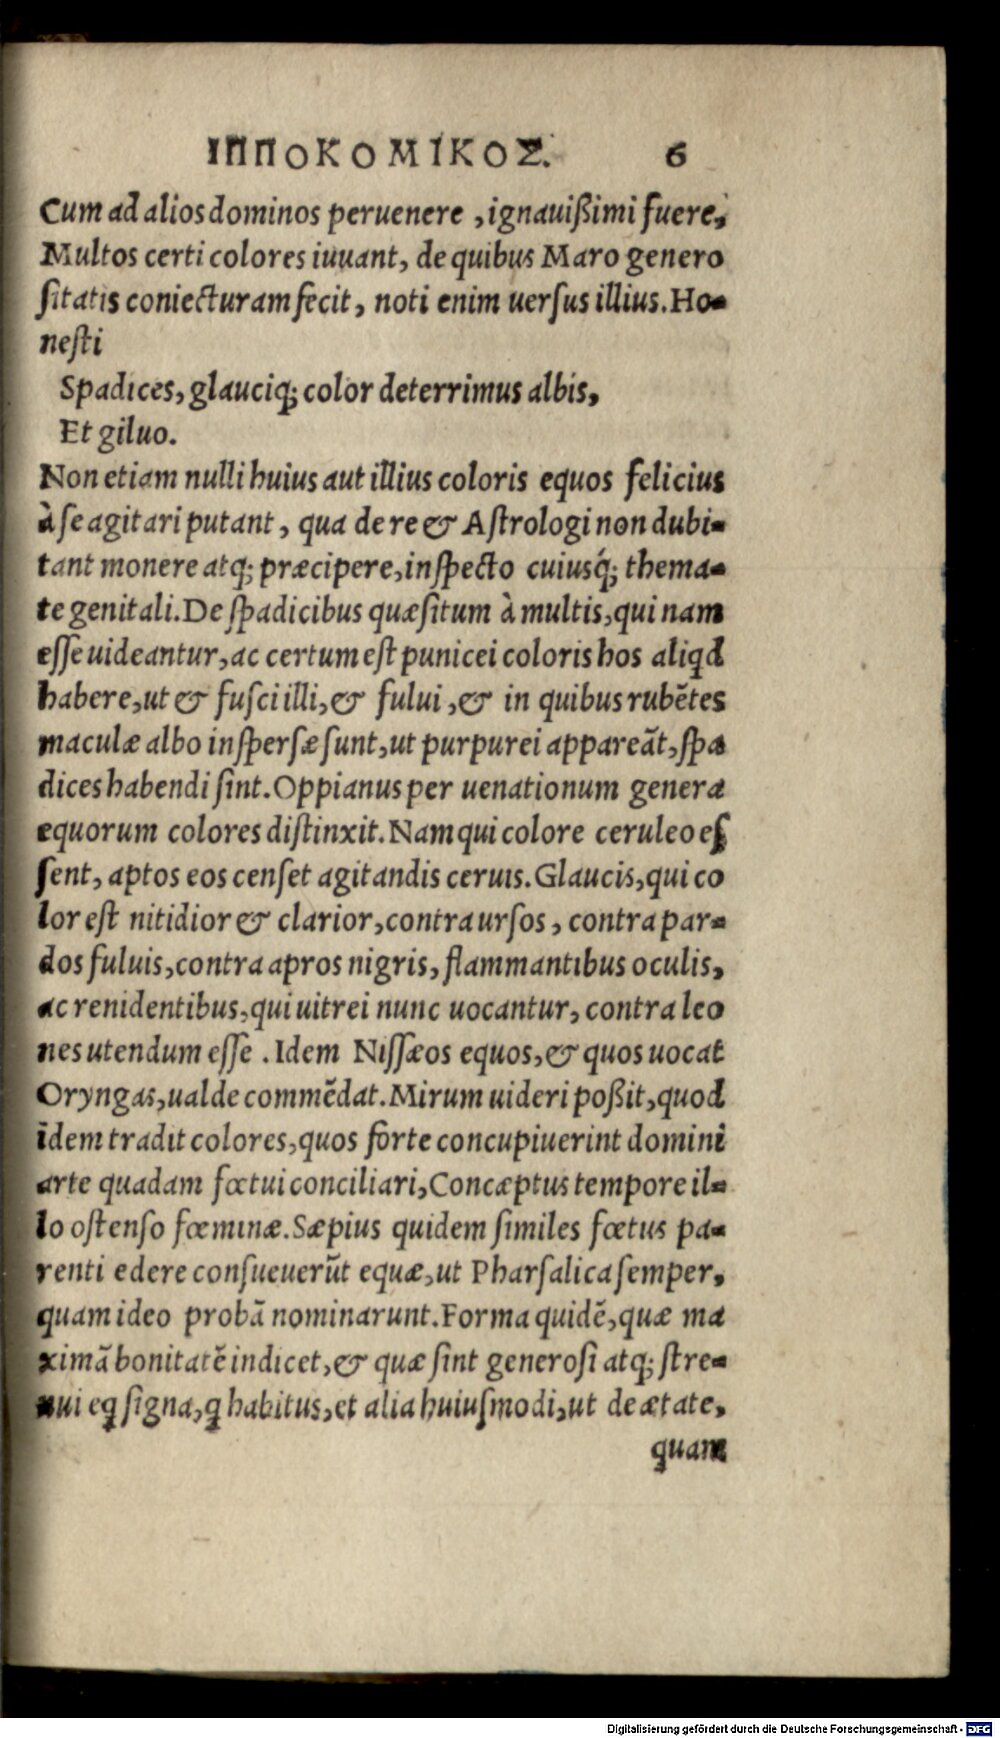 ΙΠΠΟΚΟΜΙΚΟΣ. 6
Cum ad alios dominos peruenere, ignauißimi fuere,
Multos certi colores iuuant, de quibus Maro genero
ſitatis coniecturam fecit, noti enim uerſus illius. Ho-
neſti
Spadices, glauciq́; color deterrimus albis,
Et giluo.
Non etiam nulli huius aut illius coloris equos felicius
à ſe agitari putant, qua de re & Aſtrologi non dubi-
tant monere atq; præcipere, inſpecto cuiusq́; thema-
te genitali. De ſpadicibus quæſitum à multis, qui nam
eſſe uideantur, ac certum eſt punicei coloris hos aliqd
habere, ut & fuſci illi, & fului, & in quibus rubẽtes
maculæ albo inſperſæ ſunt, ut purpurei appareãt, ſpa
dices habendi ſint. Oppianus per uenationum genera
equorum colores diſtinxit. Nam qui colore ceruleo eſ
ſent, aptos eos cenſet agitandis ceruis. Glaucis, qui co
lor eſt nitidior & clarior, contra urſos, contra par-
dos fuluis, contra apros nigris, flammantibus oculis,
ac renidentibus, qui uitrei nunc uocantur, contra leo
nes utendum eſſe. Idem Niſſæos equos, & quos uocat
Oryngas, ualde commẽdat. Mirum uideri poßit, quod
idem tradit colores, quos forte concupiuerint domini
arte quadam fœtui conciliari, Concæptus tempore il-
lo oſtenſo fœminæ. Sæpius quidem ſimiles fœtus pa-
renti edere conſueuerũt equæ, ut Pharſalica ſemper,
quam ideo probã nominarunt. Forma quidẽ, quæ ma
ximã bonitatẽ indicet, & quæ ſint generoſi atq; ſtre-
nui eq ſigna, q habitus, et alia huiuſmodi, ut de ætate,
quam
Digitalisierung gefördert durch die Deutsche Forschungsgemeinschaft - DFG